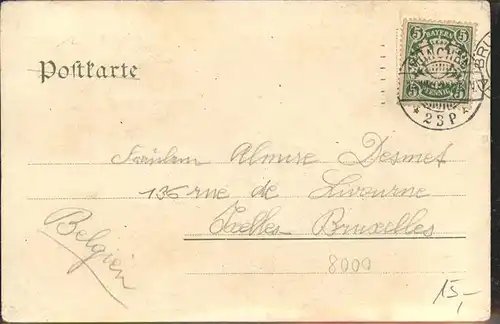 Postkarte
5 BAYERN 5
5 PFENNIG 5
MÜNCHEN
* 2 3 P *
BRU
Fräulein Almire Desmet
136 rue de Livourne
Ixelles Bruxelles
Belgien
8000
15,-